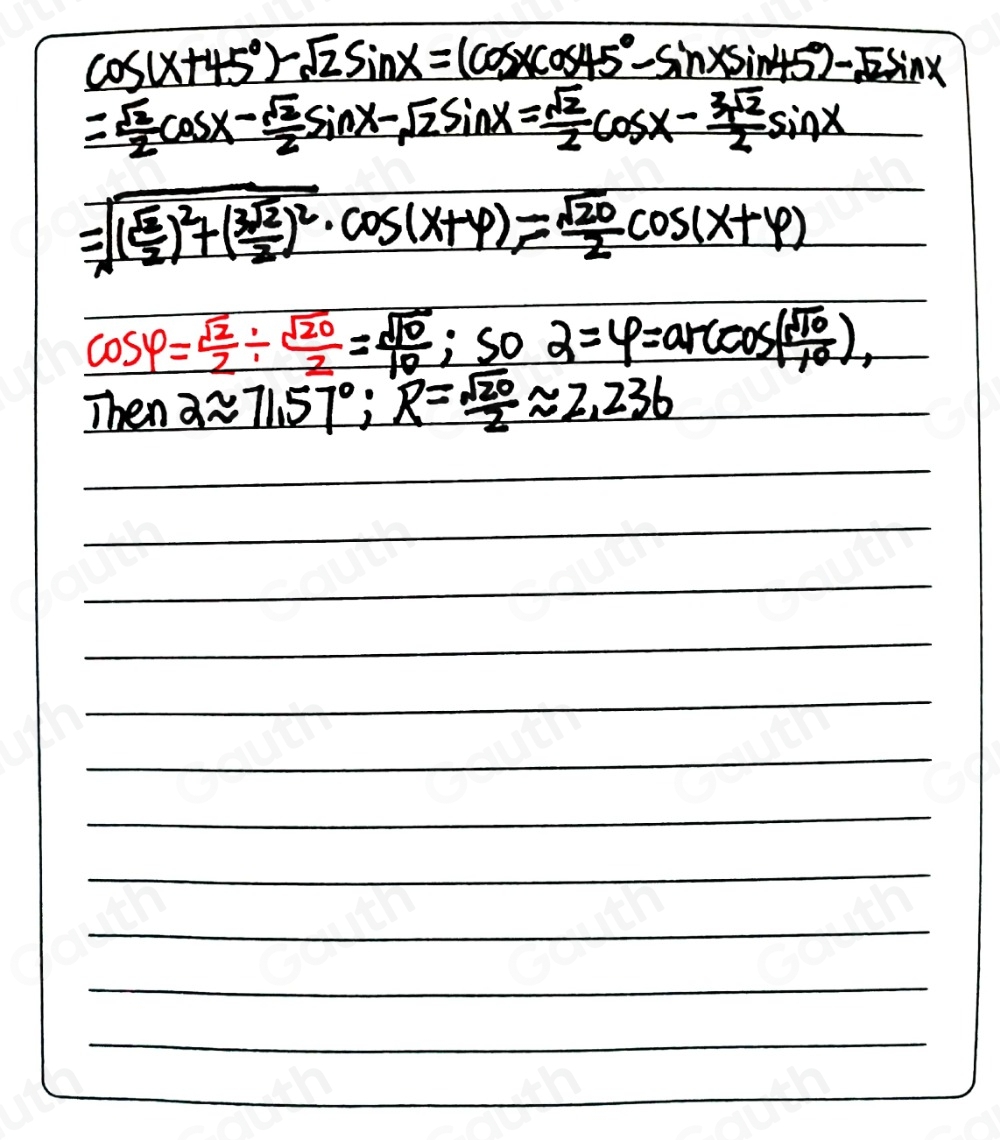 cos(x+45°)-√2sinx=(cosxcos45°-sinxsin45°)-√2sinx
=√2/2cosx-√2/2sinx-√2sinx=√2/2cosx-3√2/2sinx
=√((√2/2)²+(3√2/2)²)·cos(x+φ),=√20/2cos(x+φ)
cosφ=√2/2÷√20/2=√10/10; so α=φ=arccos(√10/10),
Then α≈71,57°; R=√20/2≈2,236